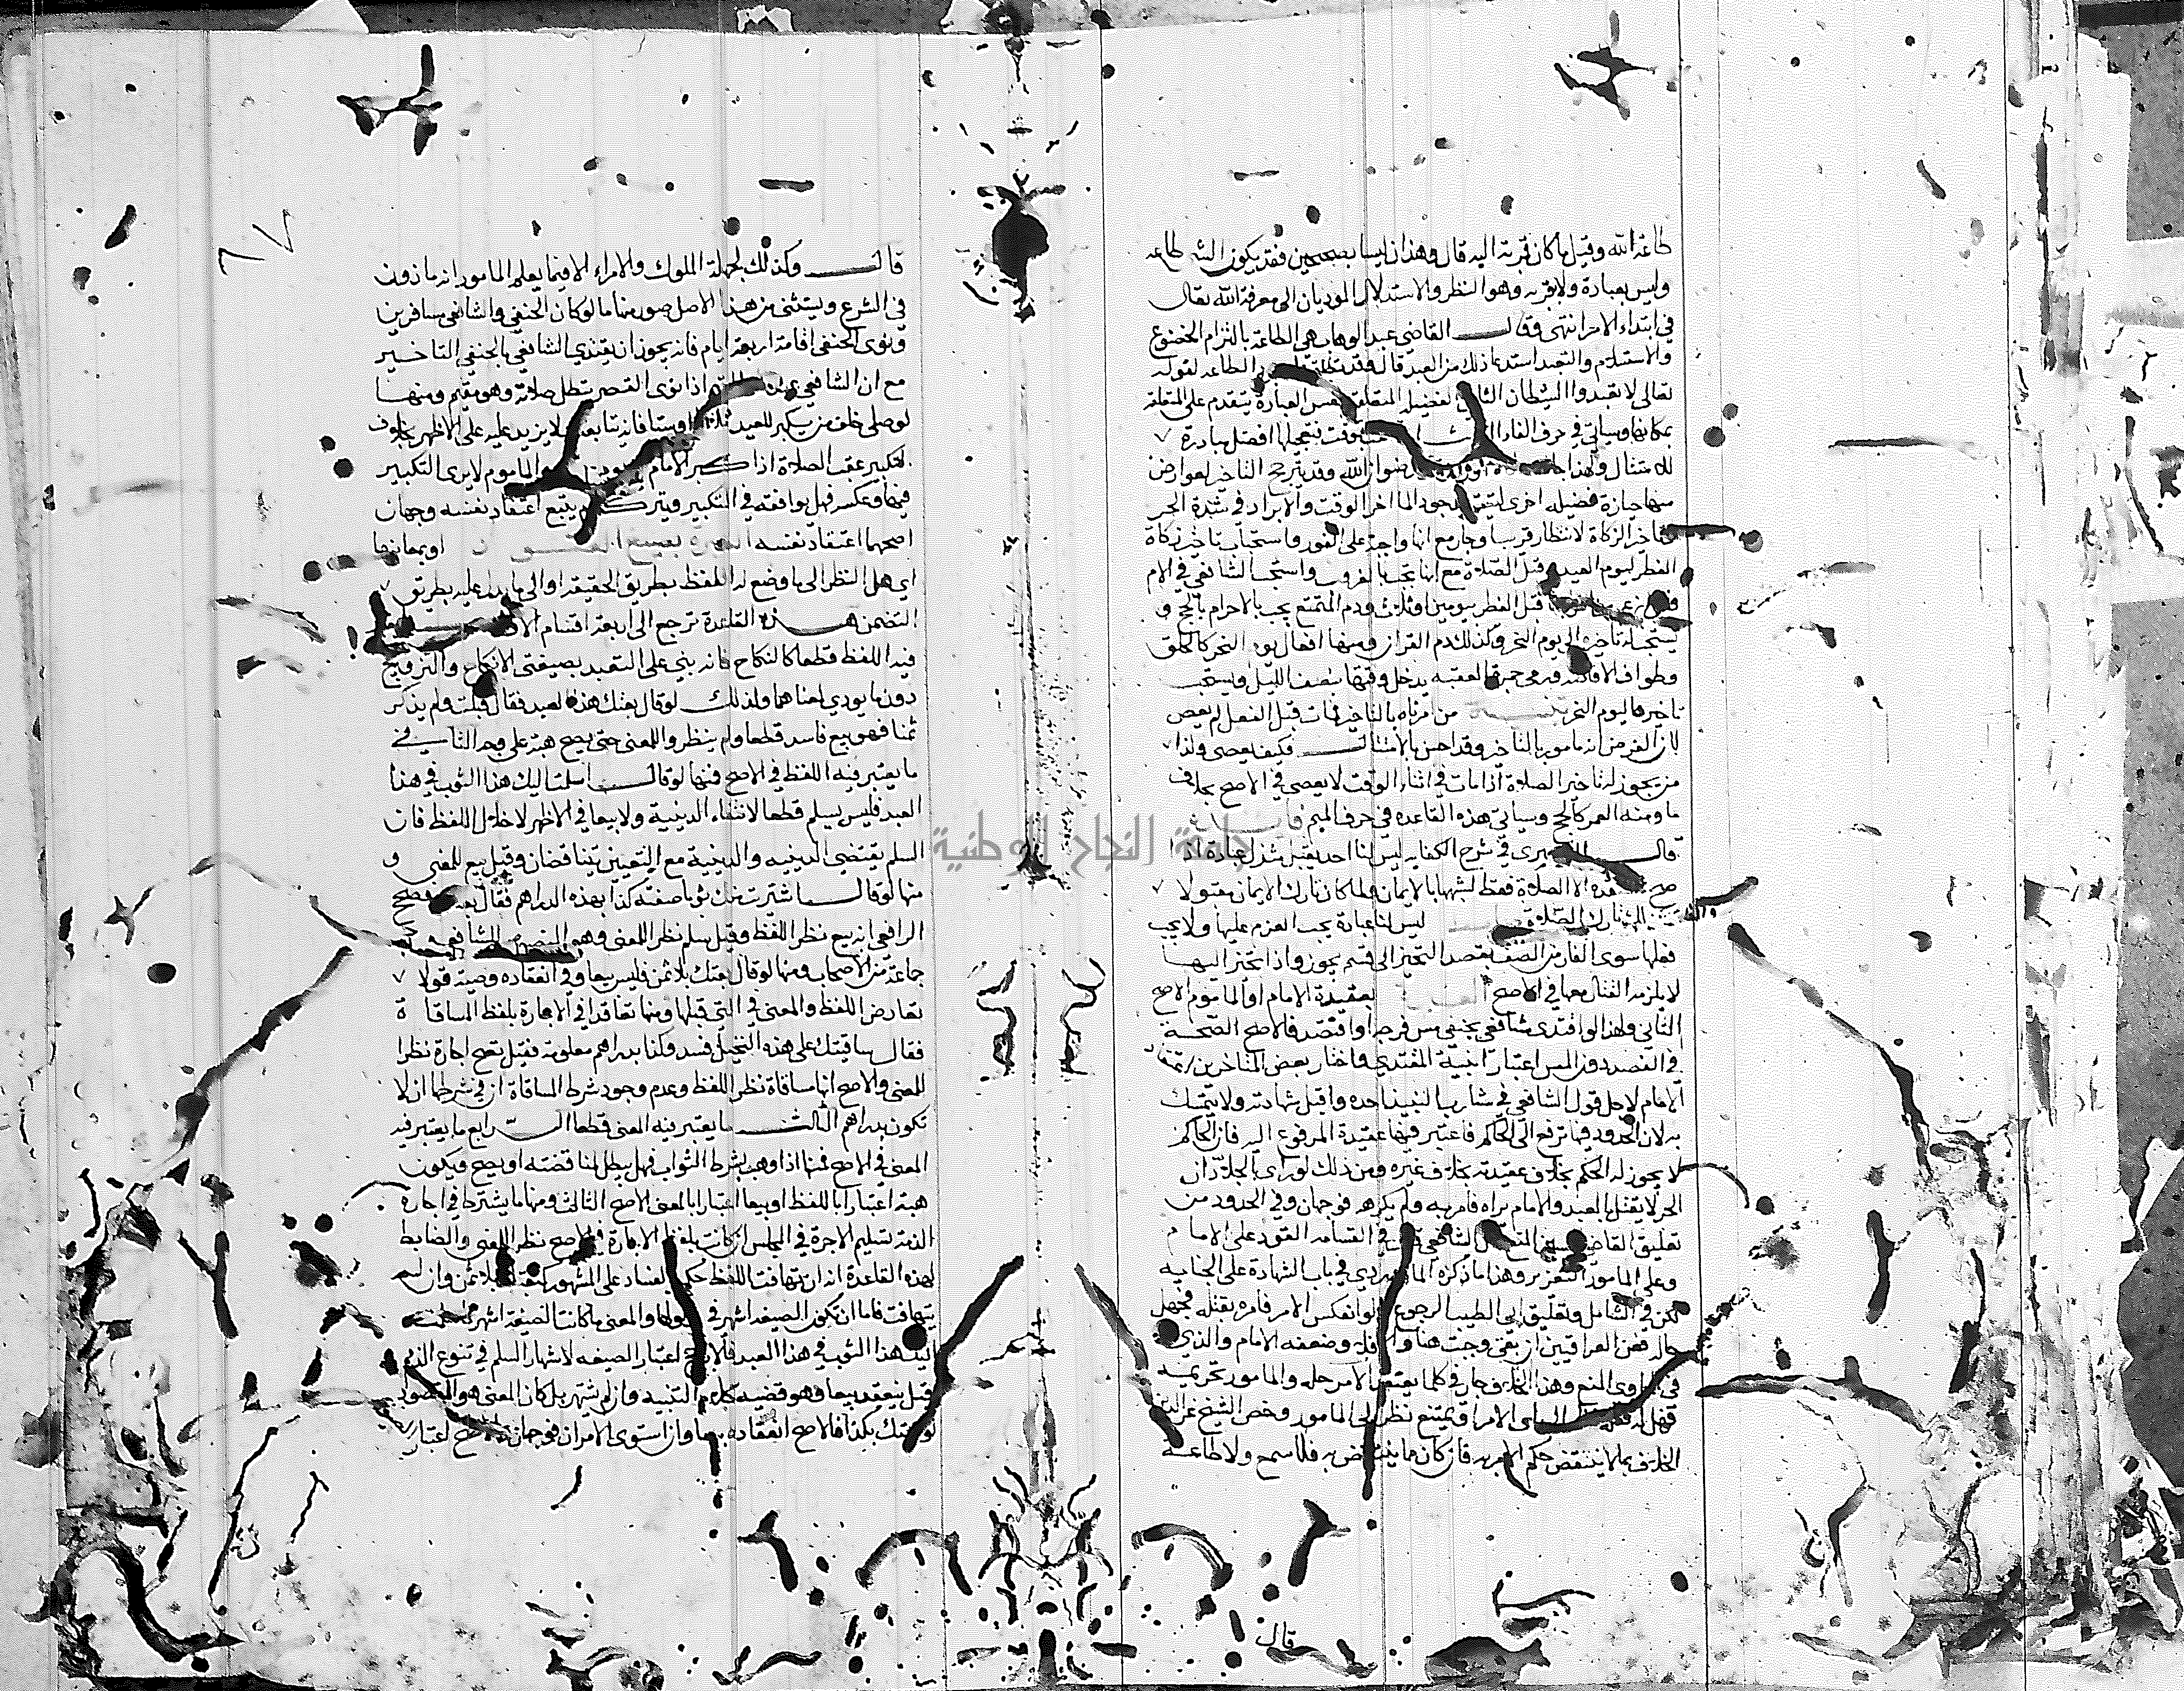 طاعة الله وقيل ما كان قربة اليه قال وهذان ليسا بصحيحين فقد يكون الشئ طاعه
وليس بعبادة ولا قربه وهو النظر والاستدلال الموديان الى معرفة الله تعالى
في ابتداء الامر انتهى وقال القاضي عبد الوهاب هي الطاعة بالتزام الخضوع
والاستسلام والتعبد استدعا ذلك من العبد قال وقد تطلق الطاعه لقوله
تعالى لا تعبدوا الشيطان الفضيله المتعلقة بنفس العبادة تتقدم على المتعلقة
بمكانها وسياتي في حرف الفاء وقت فتعجلها افضل مبادرة
للامتثال ولهذا رضوان الله وقد يترجح التاخير لعوارض
منها حيازة فضيله اخرى لتيقن وجود الما اخر الوقت والابراد في شدة الحر
وتاخير الزكاة لانتظار قريب او جار مع انها واجبة على الفور واستحباب تاخير زكاة
الفطر ليوم العيد قبل الصلاة مع انها تجب بالغروب واستحب الشافعي في الام
قبل الفطر بيومين او ثلاث ودم المتمتع يجب بالاحرام بالحج و
يستحب تاخيره الى يوم النحر وكذلك دم القران ومنها افعال يوم النحر كالحلق
وطواف الافاضة ورمي جمرة العقبه يدخل وقتها بنصف الليل ويستحب
تاخيرها ليوم النحر من امرناه بالتاخير فمات قبل الفعل لم يعص
لان الفرض انه مامور بالتاخير وقد احسن بالامتثال فكيف يعصى ولذا
من يجوز له تاخير الصلاة اذا مات في اثناء الوقت لا يعصي في الاصح بخلاف
ما وقته العمر كالحج وسياتي هذه القاعده في حرف الميم
قال في شرح الكفايه ليس لنا احد يقبل عبادة اذا
صح الا الصلاة فقط لشبهها بالايمان ولما كان تارك الايمان مقتولا
ليس لنا عبادة يجب العزم عليها ولا يجب
فعلها سوى الفار من الصف بقصد التحيز الى فئة يجوز واذا تحيز اليها
لا يلزمه القتال معها في الاصح بعقيدة الامام او الماموم الاصح
الثاني ولهذا لو اقتدى شافعي بحنفي مس فرجه او افتصد فالاصح الصحة
في الفصد دون المس اعتبارا بنية المقتدي واختار بعض المتاخرين
الامام لاجل قول الشافعي في شارب النبيذ احده واقبل شهادته ولا يتمسك
به لان الحدود فيها ترفع الى الحاكم فاعتبر فيها عقيدة المرفوع اليه فان الحاكم
لا يجوز له الحكم بخلاف عقيدته بخلاف غيره ومن ذلك لو راى الجلاد ان
الحر لا يقتل بالعبد والامام يراه فامر به ولم يكرهه فوجهان وفي الحدود من
تعليق القاضي في القسامه القود على الامام
وعلى المامور التعزير وهذا ما ذكره الماوردي في باب الشهادة على الجنايه
لكن في الشامل وتعليق ابي الطيب الرجوع ولو انعكس الامر فامره بقتله فجهل
حاله فعن العراقيين وجب هنا وضعفه الامام والذي
في المنع وهذا الخلاف جار في كلما يعتقد الامر حله والمامور تحريمه
فهل له فعله الامر او يمتنع نظرا الى المامور وخص الشيخ عز الدين
الخلاف بما لا ينتقض حكم الامر به فان كان مما ينتقض به فلا سمع ولا طاعة
قال
٦٧
قال وكذلك لجهلة الملوك والامراء الا فيما يعلم المامور انه ماذون
في الشرع ويستثنى من هذا الاصل صور منها ما لو كان الحنفي والشافعي مسافرين
ونوى الحنفي اقامة اربعة ايام فانه يجوز ان يقتدي الشافعي بالحنفي التاخير
مع ان الشافعي اذا نوى القصر بتطل صلاته وهو مقيم ومنها
لو صلى خلف من يكبر للعيد ثلاثا او ستا فانه يتابعه ولا يزيد عليه على الاظهر بخلاف
تكبير عقب الصلاة اذا كبر الامام والماموم لا يرى التكبير
فيها وعكسه فهل يوافقه في التكبير وتركه ام يتبع اعتقاد نفسه وجهان
اصحهما اعتقاد نفسه العبرة بصيغ العقود او بمعانيها
اي هل النظر الى ما وضع له اللفظ بطريق الحقيقة او الى ما يدل عليه بطريق
التضمن هذه القاعدة ترجع الى اربعة اقسام
فيه اللفظ قطعا كالنكاح فانه بني على التعبد بصيغتي الانكاح والتزويج
دون ما يودي لمعناهما ولذلك لو قال بعتك هذه العبد فقال قبلت ولم يذكر
ثمنا فهو بيع فاسد قطعا ولم ينظروا للمعنى حتى يصح هبة على وجه الثاني في
ما يعتبر فيه اللفظ في الاصح فمنها لو قال اسلمت اليك هذا الثوب في هذا
العبد فليس بسلم قطعا لانتفاء الدينية ولا بيعا في الاظهر لاختلال اللفظ فان
السلم يقتضي الدينيه والدينية مع التعيين يتناقضان وقيل بيع للمعنى و
منها لو قال اشتريت منك ثوبا صفته كذا بهذه الدراهم فقال بعتك فصحح
الرافعي انه بيع نظر اللفظ وقيل سلم نظر المعنى وهو
جماعة من الاصحاب ومنها لو قال بعتك بلا ثمن فليس بيعا وفي انعقاده وصية قولا
تعارض اللفظ والمعنى في التي قبلها ومنها تعاقدا في الاجارة بلفظ المساقاة
فقال ساقيتك على هذه النخيل فسد وكذا بدراهم معلومة فقيل تصح اجارة نظرا
للمعنى والاصح انها مساقاة نظر اللفظ وعدم وجود شرط المساقاة ان في شرطها ان لا
تكون بدراهم الثالث ما يعتبر فيه المعنى قطعا الرابع ما يعتبر فيه
المعنى في الاصح فمنها اذا وهب بشرط الثواب فهل يبطل لمناقضته او يصح ويكون
هبة اعتبارا باللفظ او بيعا اعتبارا بالمعنى الاصح الثالث ومنها ما يشترط في اجارة
الذمة تسليم الاجرة في المجلس ان كانت بلفظ الاجارة في الاصح نظر المعنى والضابط
لهذه القاعدة انه ان تهافت اللفظ حكم بالفساد على المشهور كبعتك بلا ثمن وان لم
يتهافت فاما ان تكون الصيغه اشهر في مدلولها والمعنى فان كانت الصيغة اشهر
اليك هذا الثوب في هذا العبد فالارجح اعتبار الصيغه لاشتهار السلم في
قيل ينعقد بيعا وهو قضية كلام التنبيه وان لم يشتهر بل كان المعنى هو المقصود
بكذا فالاصح انعقاده بيعا وان استوى الامران فوجهان اعتبار